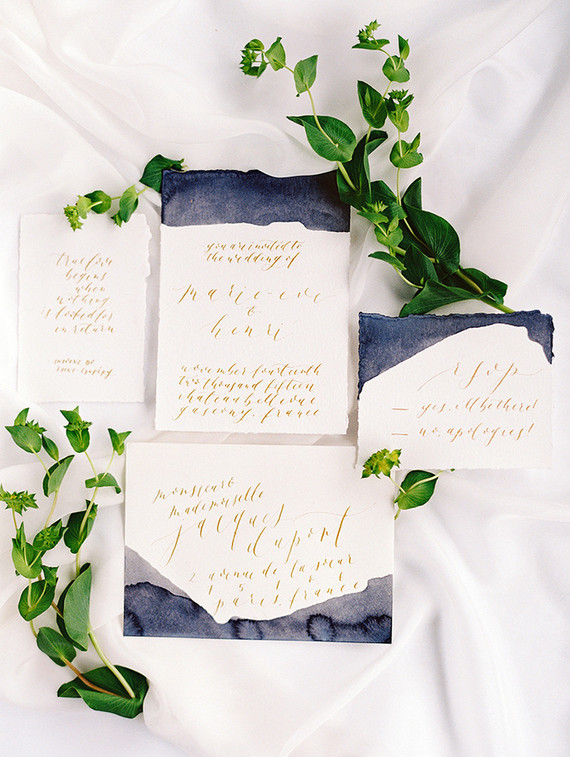 true love
begins
when
nothing
is looked for
in return
you are invited to
the wedding of
marie-eve
&
henri
november fourteenth
two thousand fifteen
chateau bellevue
gascony, france
rsvp
yes, i'll be there!
no, apologies!
monsieur &
mademoiselle
jacques
dupont
2 avenue de la soeur
paris, france